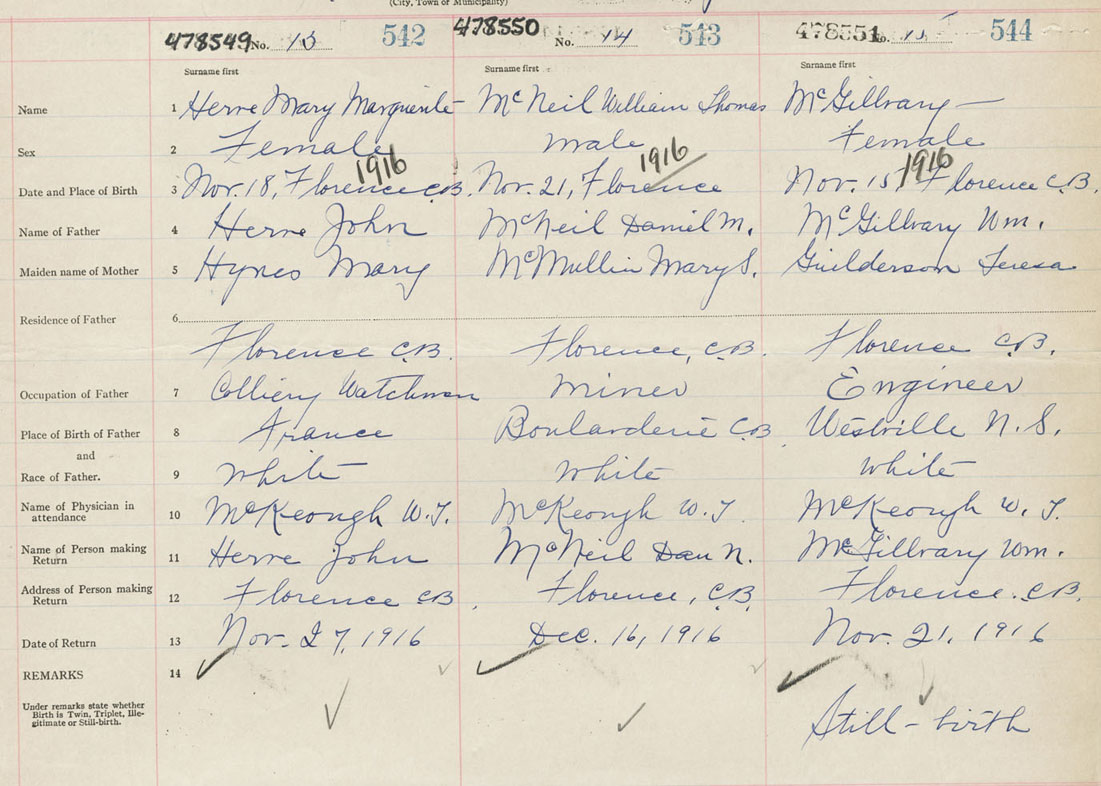 (City, Town or Municipality)
478549 No. 13 542 478550 No. 14 543 478551 No. 15 544
Surname first Surname first Surname first
Name 1 Herve Mary Marguerite McNeil William Thomas McGillvary —
Sex 2 Female male Female
1916 1916 1916
Date and Place of Birth 3 Nov. 18, Florence C.B. Nov. 21, Florence Nov. 15, Florence C.B.
Name of Father 4 Herve John McNeil Daniel M. McGillvary Wm.
Maiden name of Mother 5 Hynes Mary McMullin Mary S. Guilderson Teresa
Residence of Father 6
Florence C.B. Florence, C.B. Florence C.B.
Occupation of Father 7 Colliery Watchman Miner Engineer
Place of Birth of Father 8 France Boularderie C.B. Westville N.S.
and
Race of Father. 9 White White White
Name of Physician in
attendance 10 McKeough W.J. McKeough W.J. McKeough W.J.
Name of Person making
Return 11 Herve John McNeil Dan N. McGillvary Wm.
Address of Person making
Return 12 Florence C.B. Florence, C.B. Florence. C.B.
Date of Return 13 Nov. 27, 1916 Dec. 16, 1916 Nov. 21, 1916
REMARKS 14
Under remarks state whether
Birth is Twin, Triplet, Ille-
gitimate or Still-birth.
Still-birth